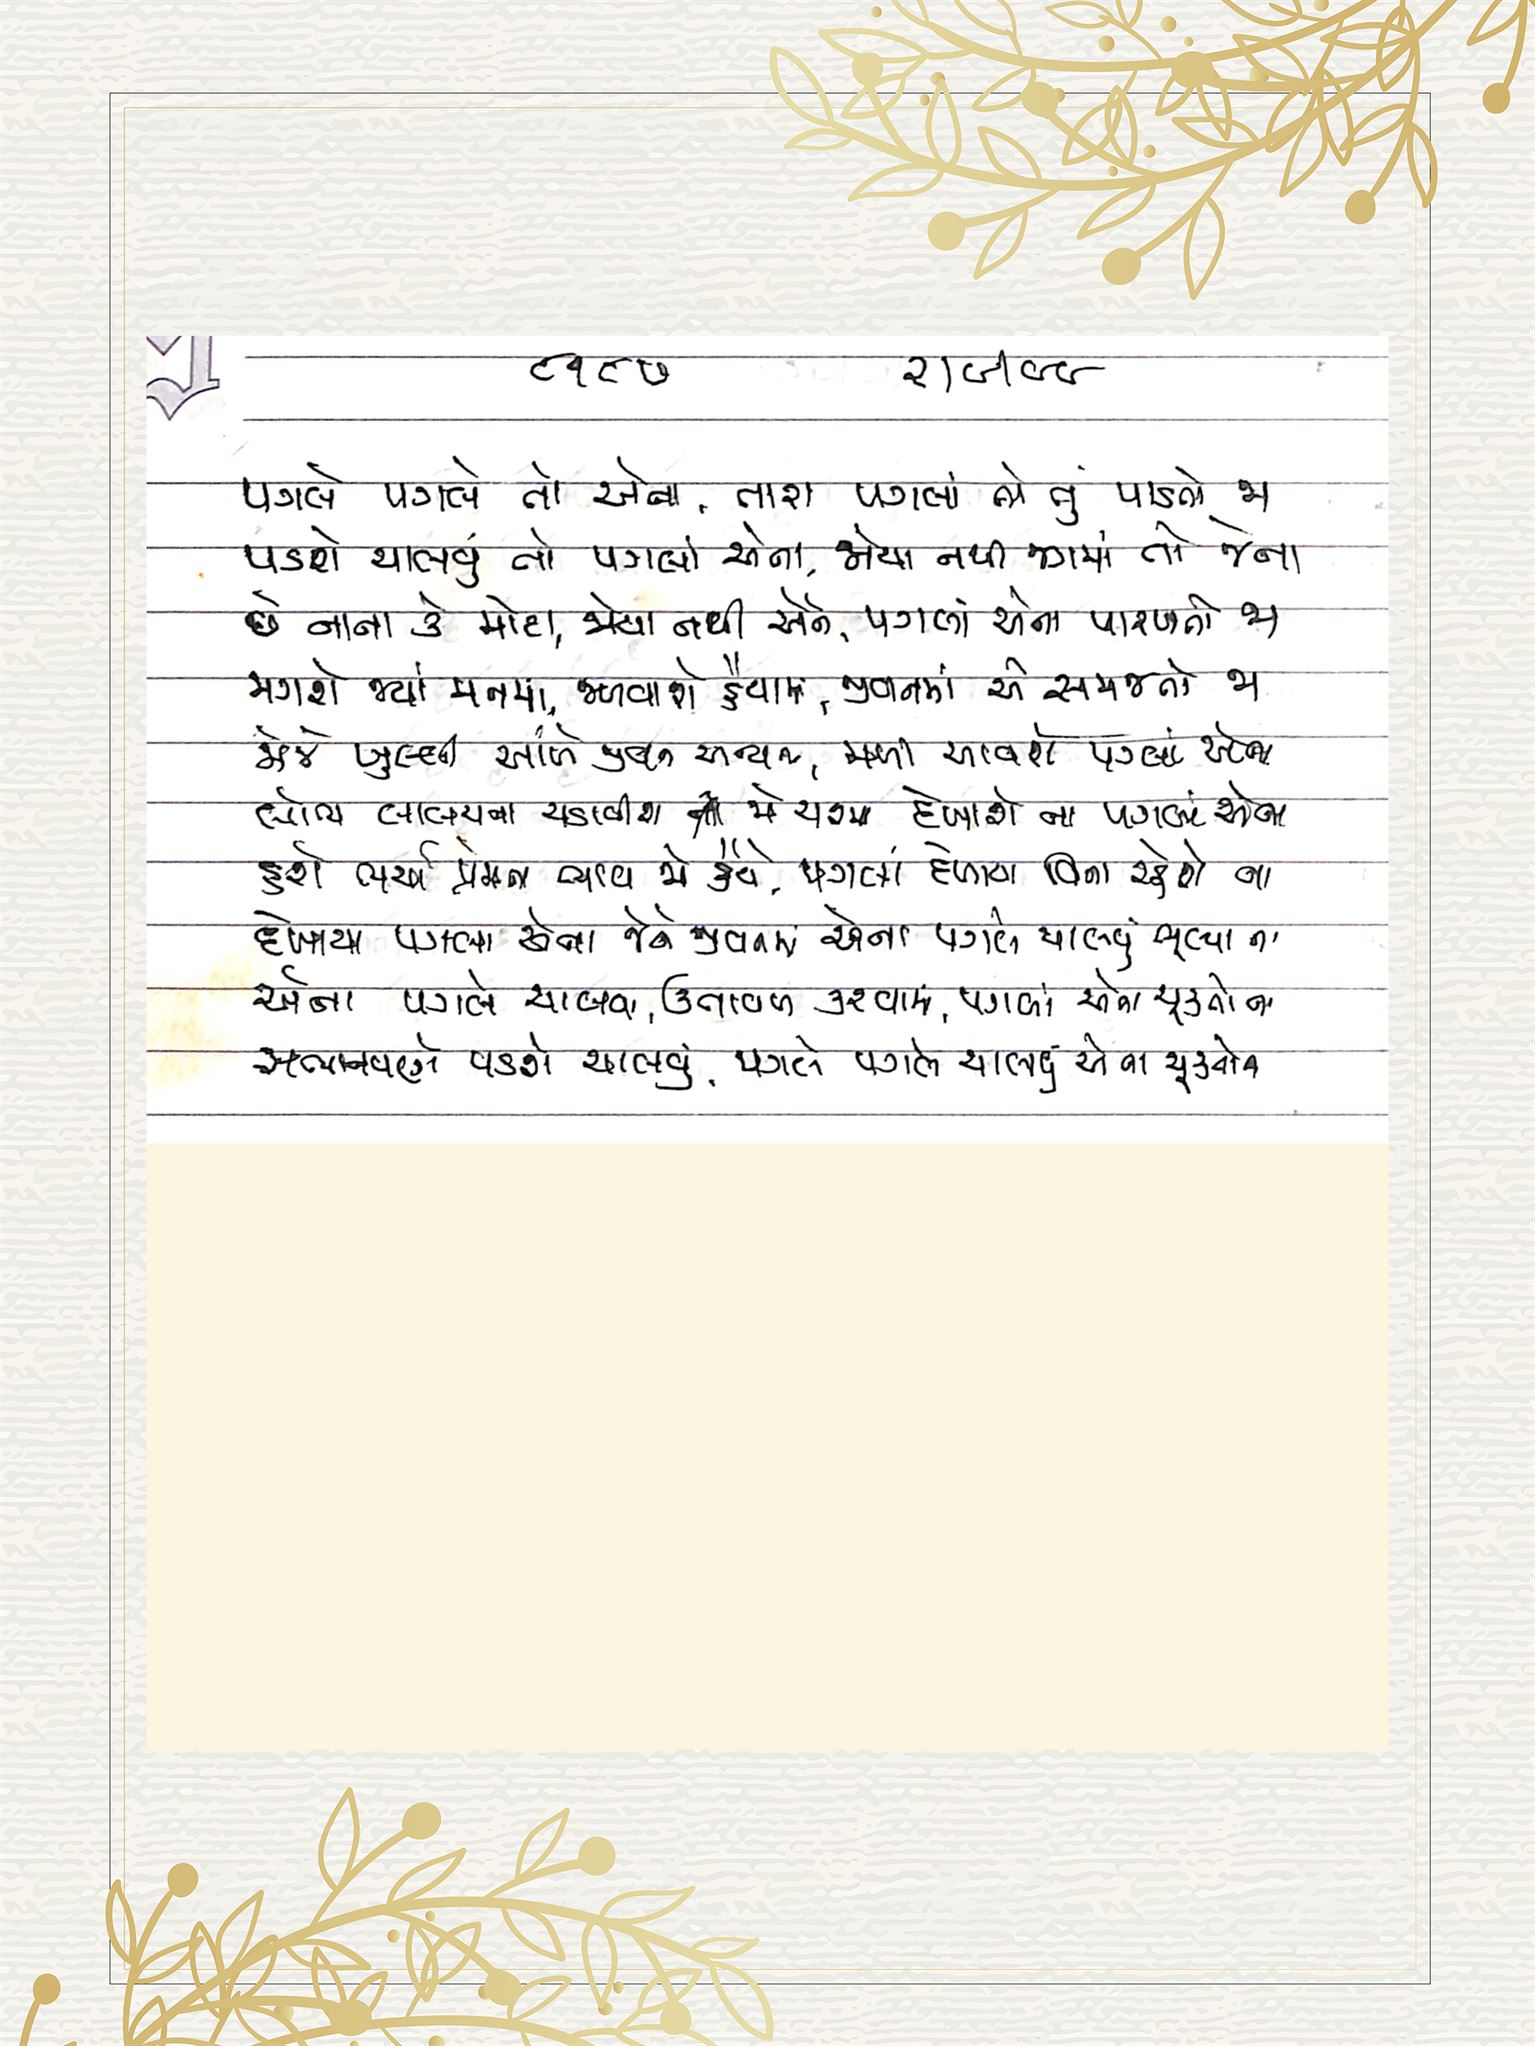 ૯૧૯૭ ૨/૭/૦૦
પગલે પગલે તો એના, તારા પગલાં તો તું પાડતો જા
પડશે ચાલવું તો પગલાં એના, જોયા નથી જગમાં તો જેના
છે નાના કે મોટા, જોયા નથી એને, પગલાં એના પારખતો જા
મળશે જ્યાં મનમાં, જળવાશે હૈયામાં, જીવનમાં એ સમજતો જા
જોજે ખુલ્લી આંખે જીવન અન્યના, મળી આવશે પગલાં એના
લોભ લાલચના ચડાવીશ જો ચશ્મા દેખાશે ના પગલાં એના
હશે ભર્યા પ્રેમના ભાવ જો હૈયે, પગલાં દેખાયા વિના રહેશે ના
દેખાયા પગલા એના જેને જીવનમાં એના પગલે ચાલવું ભૂલ્યા ના
એના પગલે ચાલવા, ઉતાવળ કરવામાં, પગલાં એના ચૂકતો ના
સભાનપણે પડશે ચાલવું, પગલે પગલે ચાલવું એના ચૂકતો ના